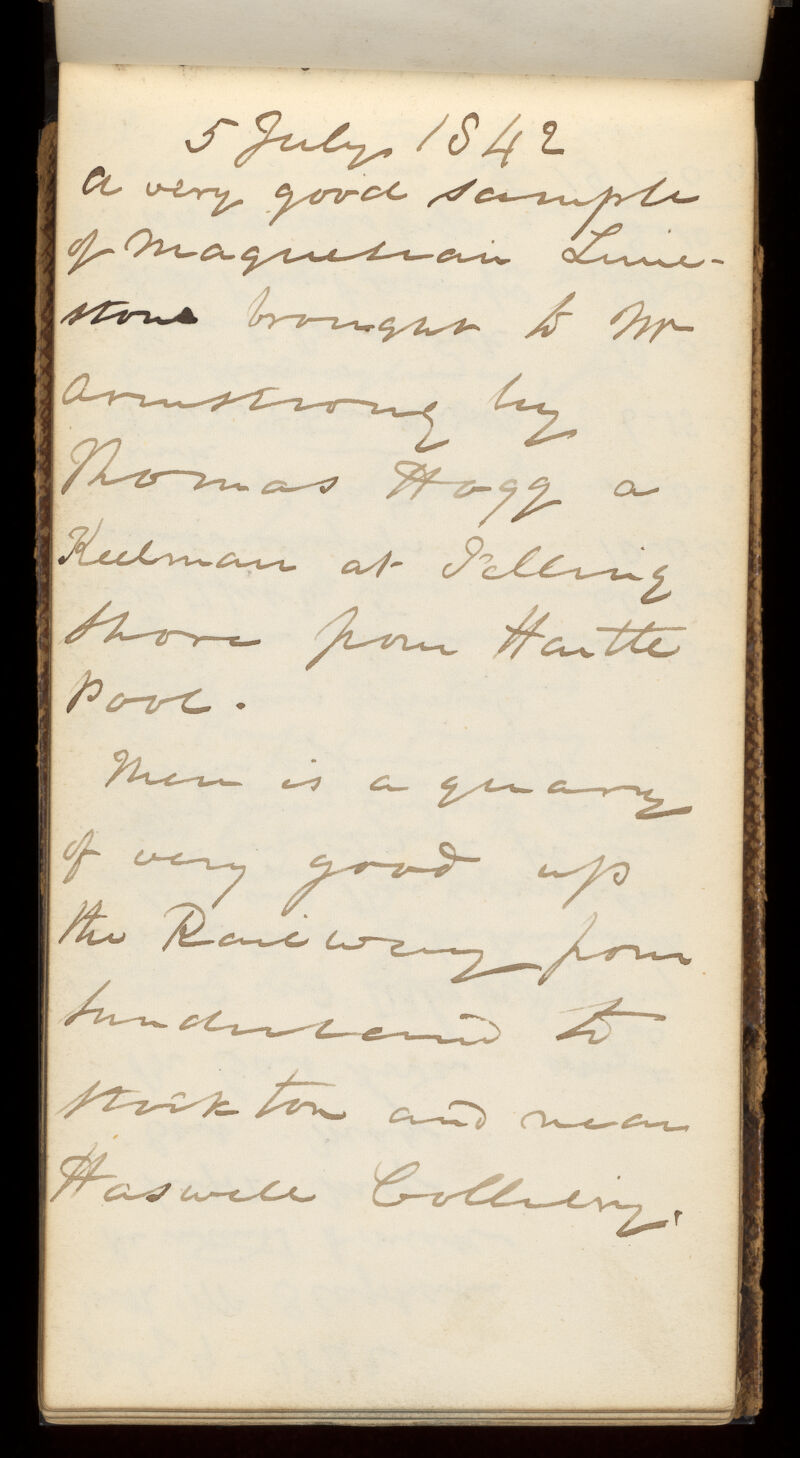 5 July 1842
a very good sample
of Magnesian Lime-
stone brought to Mr
Armstrong by
Thomas Hogg a
Keelman at Felling
Shore from Hartle
Pool.
There is a quarry
of very good up
the Railway from
Sunderland to
Stockton and near
Haswell Colliery.